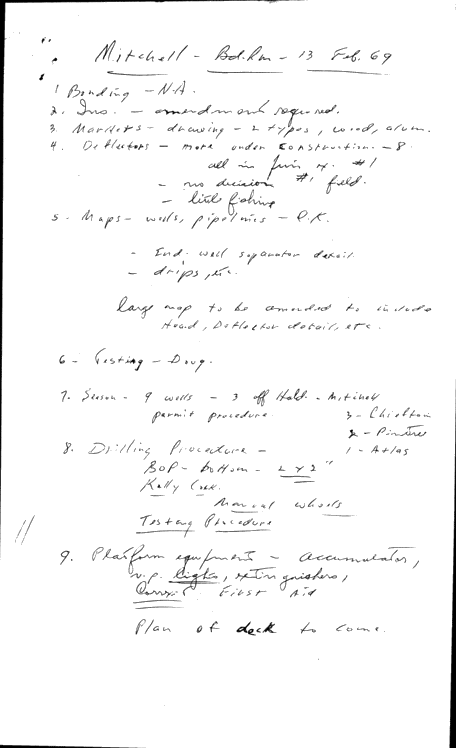 Mitchell - Bd.Rm - 13 Feb. 69
1 Bonding - N.A.
2. Ins. - amendment required.
3. Markers - drawing - 2 types, wood, alum.
4. Deflectors - more under construction. - 8
all in #1
- no decision #1 field.
- little fishing
5 - Maps - wells, pipelines - O.K.
- Ind. well separator detail.
- drips, etc.
large map to be amended to include
Head, Deflector detail, etc.
6 - Testing - Doug.
7. Season - 9 wells - 3 off Hold. - Mitchell
permit procedure. 3 - Chieftain
2 - Pointe
8. Drilling Procedure - 1 - Atlas
BOP - bottom - 2 x 2"
Kelly Cock.
Manual wheels
Testing Procedure
9. Platform equipment - accumulator,
v.p. lights, extinguishers,
First Aid
Plan of deck to come.